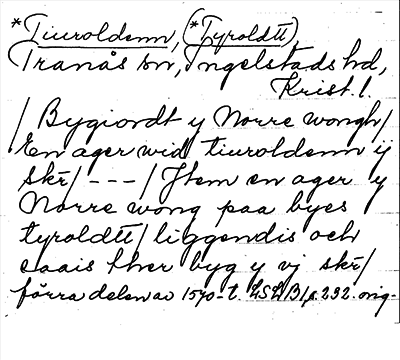 *Tiuroldenn, (*Tyroldtt)
Tranås sn, Ingelstads hd,
Krist. l.
/ Bygiordt y Norre wongh /
En ager wid tiuroldenn ij
skr/ - - - / Jtem en ager y
Norre wong paa byes
tyroldtt / liggendis och
saais hver byg y vj skr/
förra delen av 1570-t. LSLB1 p. 232. orig-